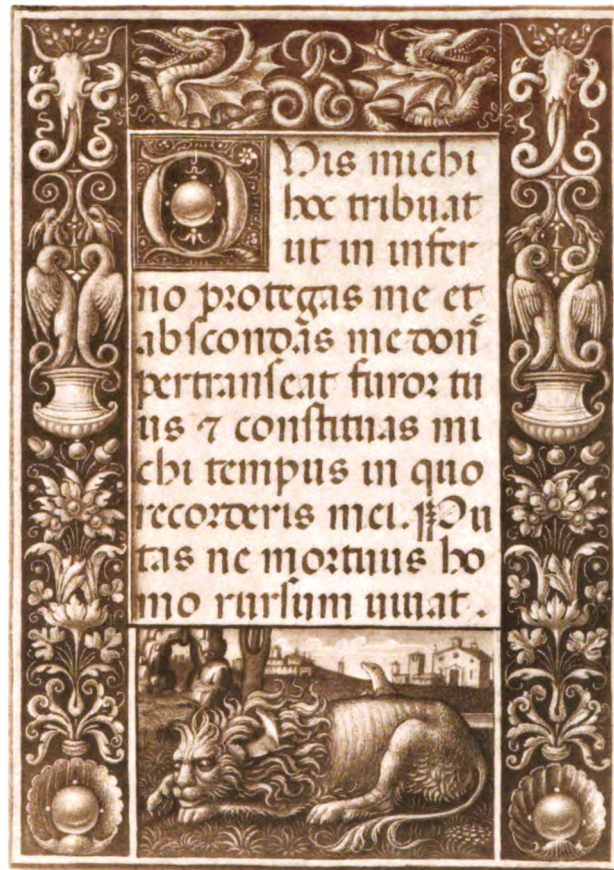 QUis michi
hoc tribuat
ut in infer
no protegas me et
abscondas me don̄
pertranseat furor tu
us ⁊ constituas mi
chi tempus in quo
recorderis mei. ¶Pu
tas ne mortuus ho
mo rursum uiuat.